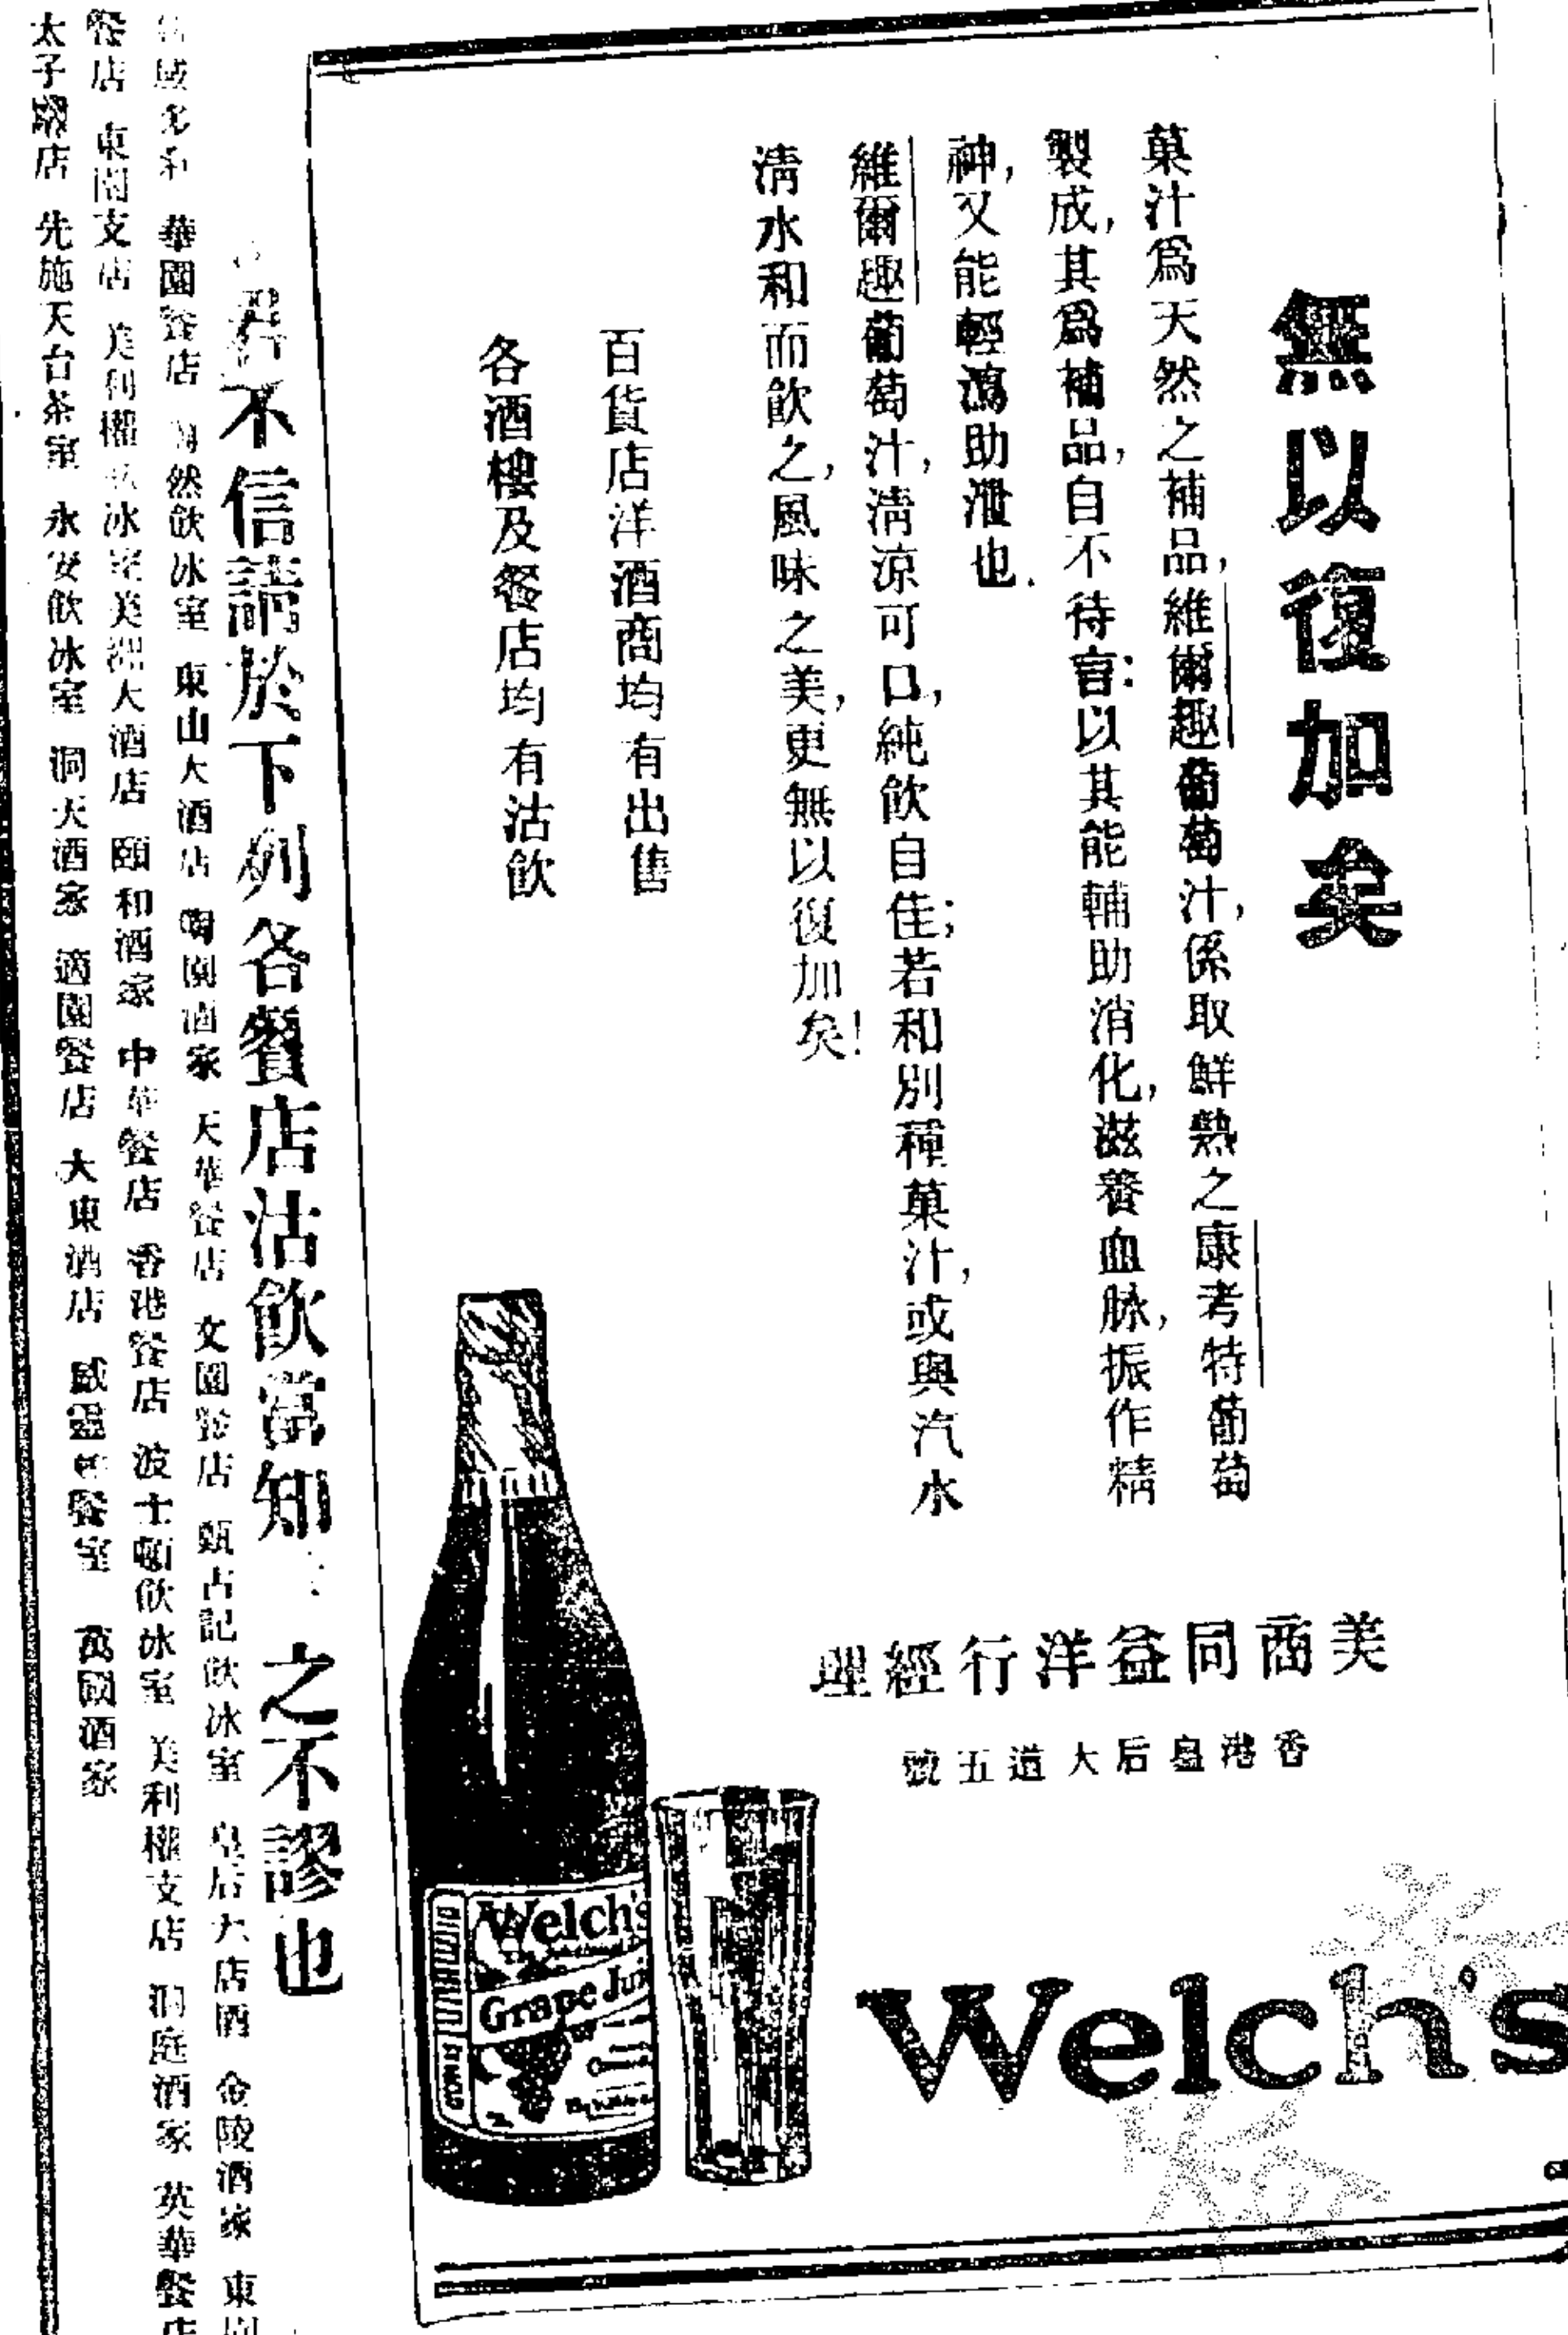 無以復加矣
菓汁爲天然之補品，維爾趣葡萄汁，係取鮮熟之康考特葡萄
製成，其爲補品，自不待言：以其能輔助消化，滋養血脉，振作精
神，又能輕瀉助泄也．
維爾趣葡萄汁，清涼可口，純飲自佳；若和別種菓汁，或與汽水
清水和而飲之，風味之美，更無以復加矣！
百貨店洋酒商均有出售
各酒樓及餐店均有沽飲
美商同益洋行經理
香港皇后大道五號
Welch's
Welch's
Grape
君不信請於下列各餐店沽飲當知 之不謬也
華園餐店 然飲冰室 東山大酒店 天華餐店 文園餐店 甄占記飲冰室 皇后大店酒 金陵酒家 東
餐店 東園支店 美利權 冰室 美洲大酒店 頤和酒家 中華餐店 香港餐店 波士頓飲冰室 美利權支店 洞庭酒家 英華餐店
太子 店 先施天台茶室 永安飲冰室 洞天酒家 適園餐店 大東酒店 威靈 餐室 萬國酒家